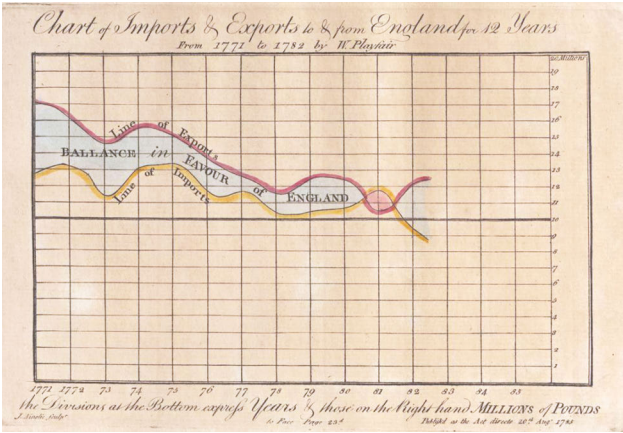 Chart of Imports & Exports to & from England for 12 Years
From 1771 to 1782 by W. Playfair
20 Millions
19
18
17
16
15
14
13
12
11
10
9
8
7
6
5
4
3
2
1
Line of Exports
BALLANCE in FAVOUR of ENGLAND
Line of Imports
1771 1772 73 74 75 76 77 78 79 80 81 82 83 84 85
the Divisions at the Bottom express Years & those on the Right hand MILLIONS of POUNDS
Publish'd as the Act directs 20th Augt 1785
to Face Page